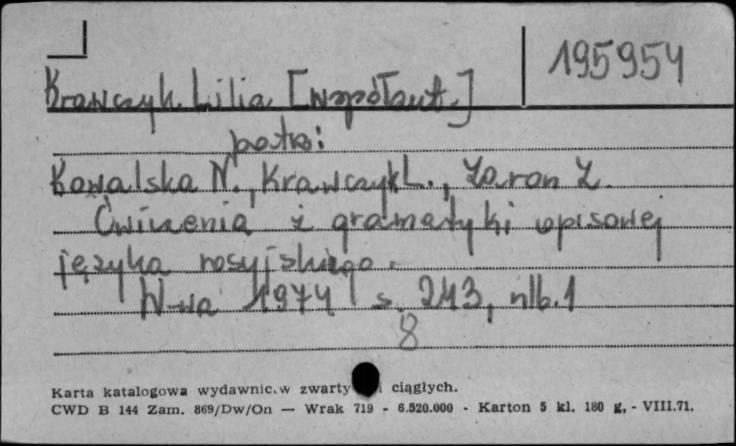 195954
Krawczyk Lilia [współaut.]
patrz:
Kowalska N., Krawczyk L., Zaron Z.
Ćwiczenia z gramatyki opisowej
języka rosyjskiego.
W-wa 1974 s. 243, nlb. 1
8
Karta katalogowa wydawnic. w zwarty i ciągłych.
CWD B 144 Zam. 869/Dw/On — Wrak 719 - 6.520.000 - Karton 5 kl. 180 g. - VIII.71.